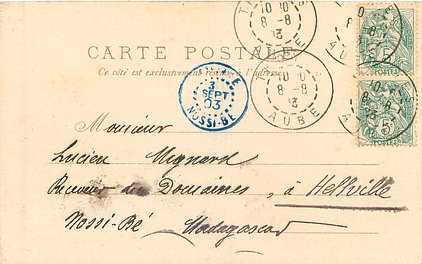 CARTE POSTALE
Ce côté est exclusivement réservé à l'adresse
3
SEPT
03
NOSSI-BÉ
10
8-8
03
AUBE
10
8-8
03
AUBE
5
5
Monsieur
Lucien Mignard
Receveur des Douaines, à Hellville
Nossi-Bé Madagascar